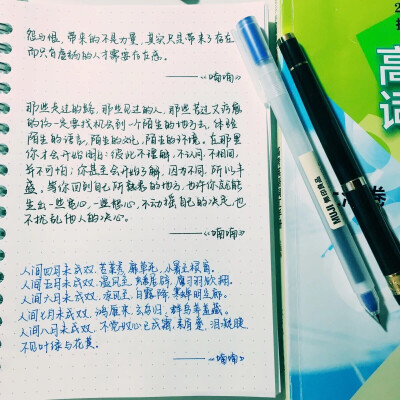 怨与恨,带来的不是力量,其实只是带来了存在
而只有虚弱的人才需要存在感。
——《喃喃》
那些走过的路,那些见过的人,那些苦过又伤痛
的你一定要找机会到一个陌生的地方去,体验
陌生的语言,陌生的文化,陌生的环境。在那里
你才会开始明白:彼此不理解,不认同,不相同,
并不可怕;你甚至会开始了解,因为不同,所以丰
盛。等你回到自己所熟悉的地方,也许你就能
生出一些宽心,一些信心,不动摇自己的决定,也
不扰乱他人的决心。
——《喃喃》
人间四月未成双,苦菜秀,靡草死,小暑至
人间五月未成双,温风至,蟋蟀居
人间六月未成双,凉风至,白露降,寒蝉
人间七月未成双,鸿雁来,玄鸟归,群鸟养羞藏。
人间八月未成双,不觉
不见叶绿与花黄。
——《喃喃》
MUJI 無印良品
高
词
卷